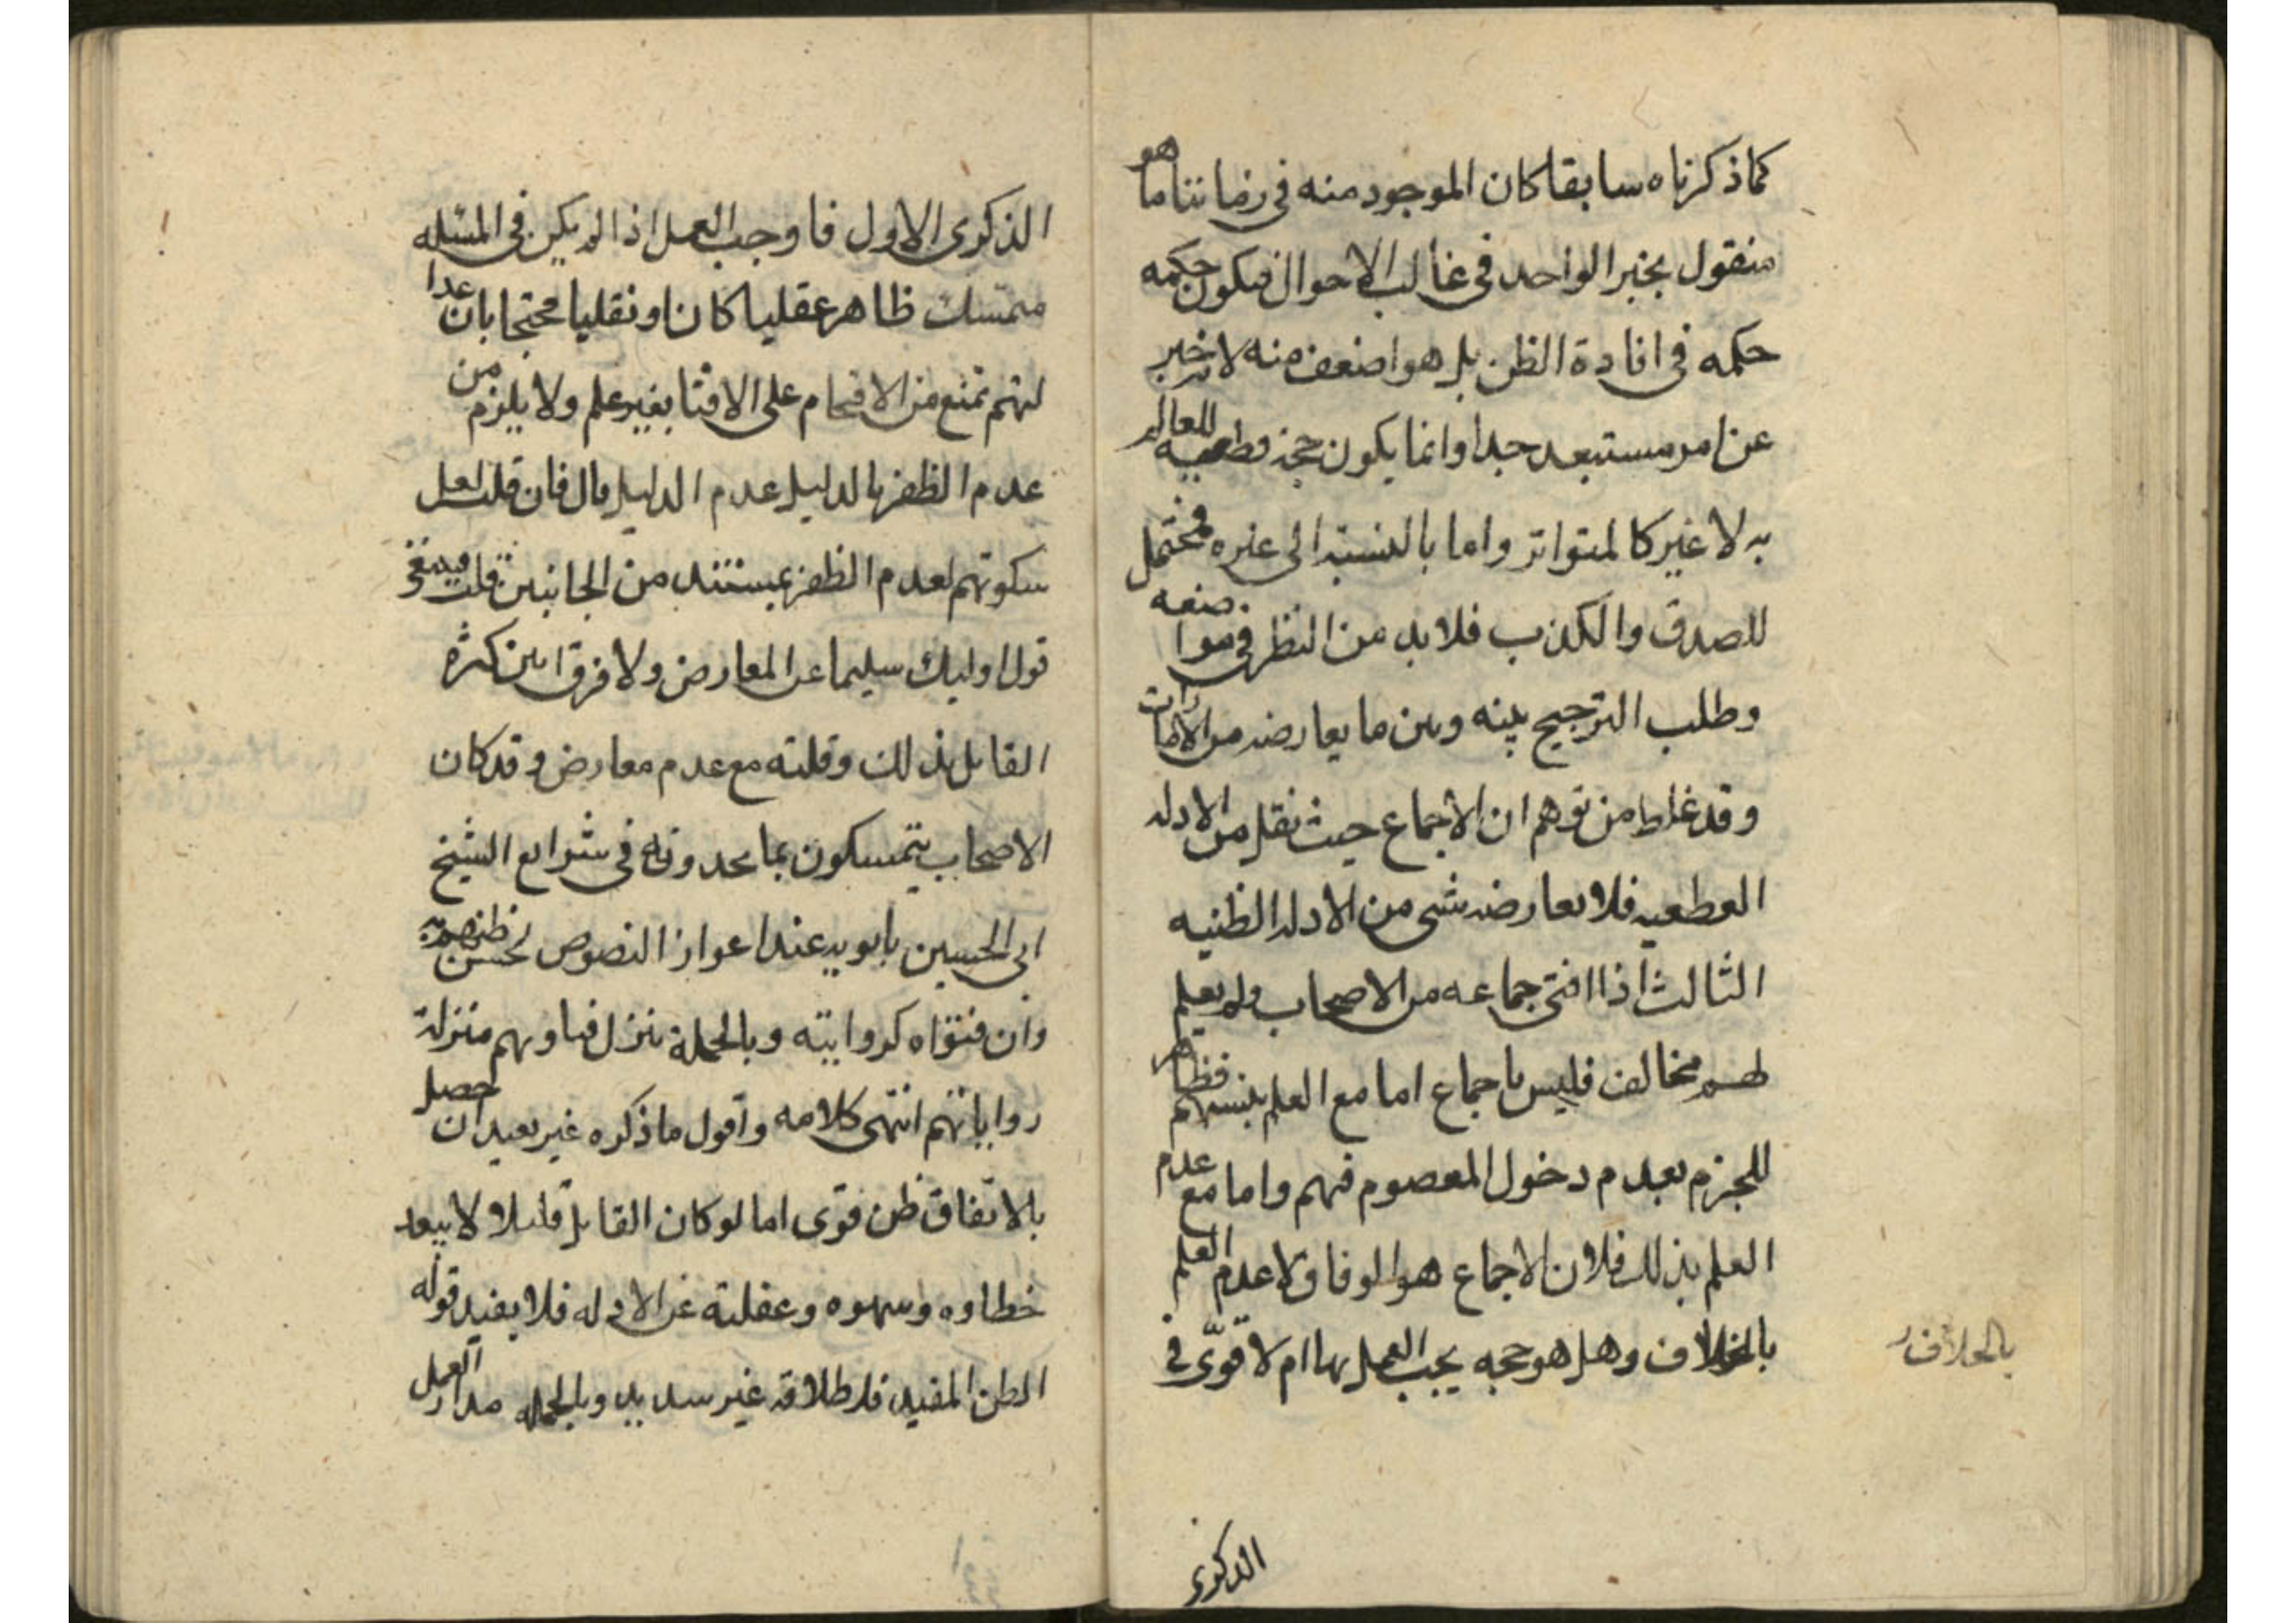 كما ذكرناه سابقا كان الموجود منه في زماننا ما هو
منقول بخبر الواحد في غالب الاحوال فيكون حكمه
حكمه في افادة الظن بل هو اضعف منه لانه خبر
عن امر مستبعد جدا وانما يكون حجة قطعية للعالم
به لا غير كالمتواتر واما بالنسبة الى غيره فمحتمل
للصدق والكذب فلا بد من النظر في مواضعه
وطلب الترجيح بينه وبين ما يعارضه من الامارات
وقد غلط من توهم ان الاجماع حيث نقل من الادلة
القطعيه فلا يعارضه شي من الادلة الظنيه
الثالث اذا افتى جماعه من الاصحاب ولم يعلم
لهم مخالف فليس باجماع اما مع العلم بنسبهم فظاهر
للجزم بعدم دخول المعصوم فيهم واما مع عدم
العلم بذلك فلان الاجماع هو الوفاق لا عدم العلم
بالخلاف وهل هو حجه يجب العمل بها ام لا قوّى في
بالخلاف
الذكرى
الذكرى الاول فاوجب العمل اذا لم يكن في المسئله
متمسك ظاهر عقليا كان او نقليا محتجا بان عدا
لتهم تمنع من الاقتحام على الافتا بغير علم ولا يلزم من
عدم الظفر بالدليل عدم الدليل قال فان قلت لعل
سكوتهم لعدم الظفر بمستند من الجانبين قلت فيبقى
قول اوليك سليما عن المعارض ولا فرق بين كثرة
القايل بذلك وقلته مع عدم معارض وقد كان
الاصحاب يتمسكون بما يجدونه في شرايع الشيخ
ابى الحسين بابويه عند اعواز النصوص لحسن ظنهم به
وان فتواه كروايته وبالجملة ينزل فتاويهم منزلة
رواياتهم انتهى كلامه واقول ما ذكره غير بعيد ان حصل
بالاتفاق ظن قوى اما لو كان القايل قليلا ولا يبعد
خطاوه وسهوه وغفلته عن الادله فلا يفيد قوله
الظن المفيد فاطلاقه غير سديد وبالجمله مدار العمل